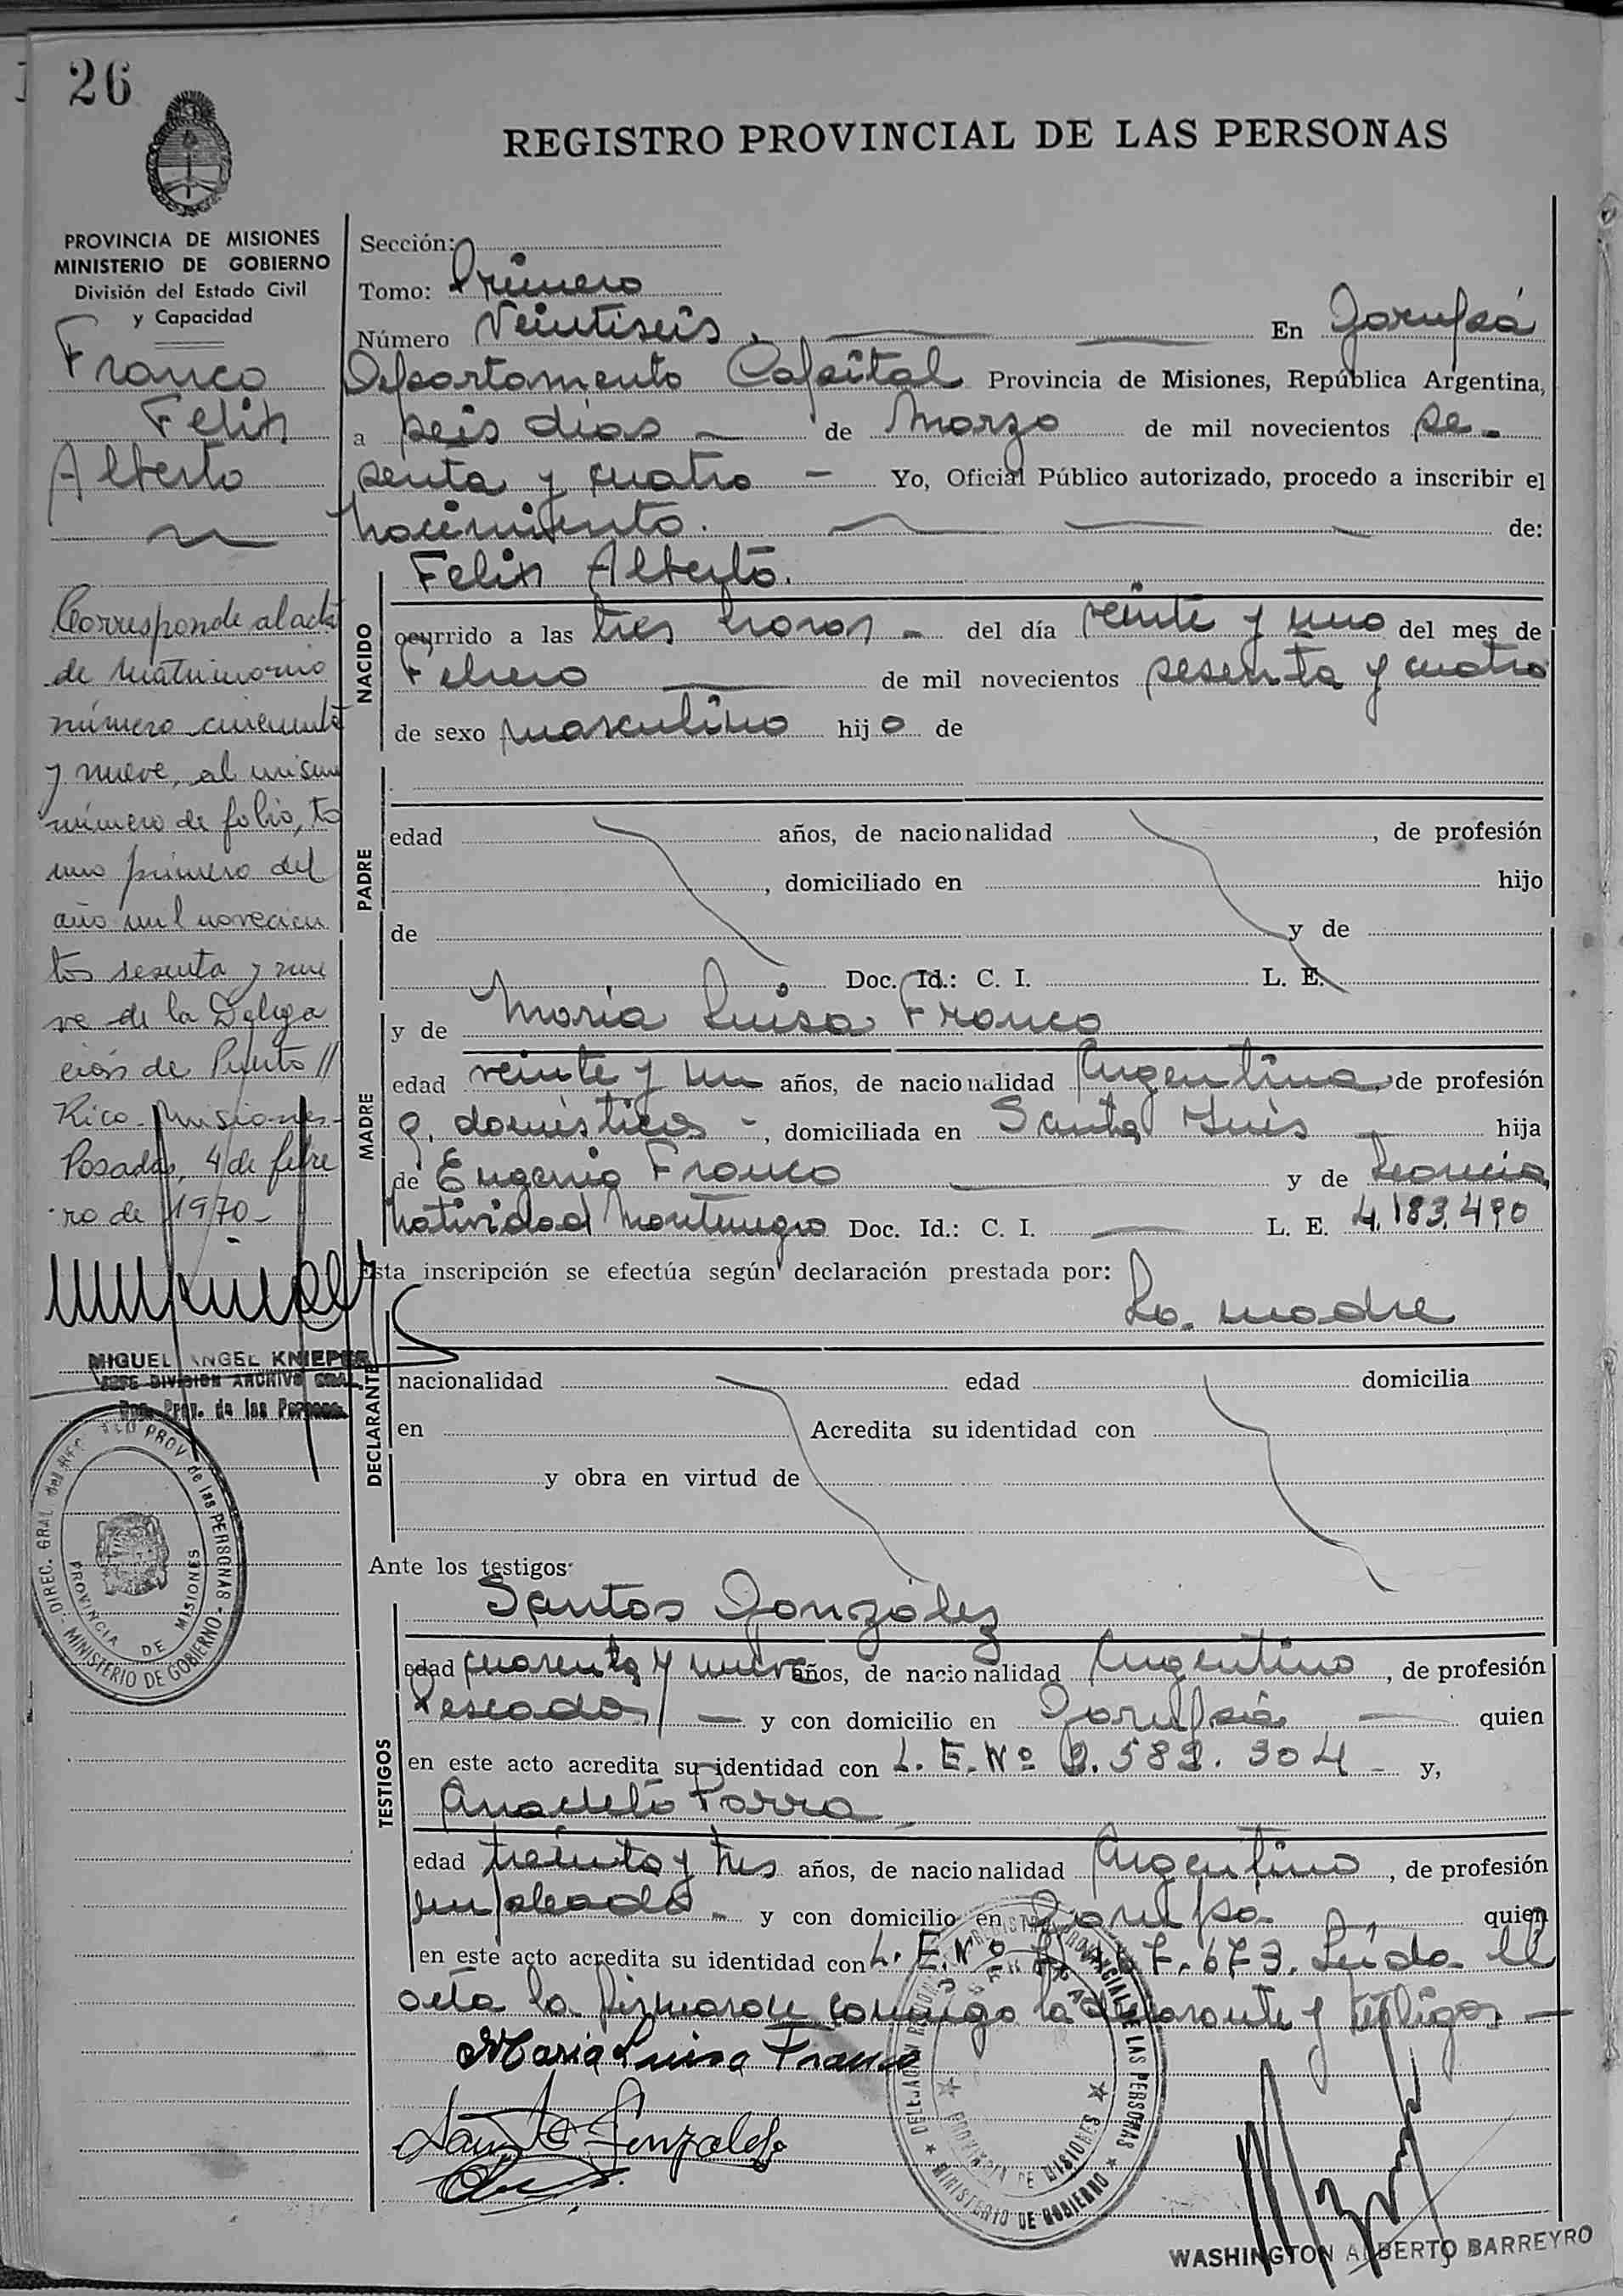 26
REGISTRO PROVINCIAL DE LAS PERSONAS
PROVINCIA DE MISIONES
MINISTERIO DE GOBIERNO
División del Estado Civil
y Capacidad
Franco
Felix
Alberto
Corresponde al acta
de matrimonio
número cincuenta
y nueve, al mismo
número de folio, to
mo primero del
año mil novecien
tos sesenta y nue
ve de la Delega
ción de Puerto //
Rico - Misiones -
Posadas, 4 de febre
ro de 1970 -
MIGUEL ANGEL KNIEPER
JEFE DIVISION ARCHIVO GRAL.
Reg. Prov. de las Personas
DIREC. GRAL del REG PROV de las PERSONAS
MINISTERIO DE GOBIERNO
PROVINCIA DE MISIONES
Sección:
Tomo: Primero
Número Veintiseis. En Garupá
Departamento Capital Provincia de Misiones, República Argentina,
a seis días - de Marzo de mil novecientos se-
senta y cuatro - Yo, Oficial Público autorizado, procedo a inscribir el
nacimiento. de:
Felix Alberto.
NACIDO
ocurrido a las tres horas - del día veinte y uno del mes de
Febrero de mil novecientos sesenta y cuatro
de sexo masculino hijo de
PADRE
edad años, de nacionalidad , de profesión
, domiciliado en hijo
de y de
Doc. Id.: C. I. L. E.
MADRE
y de María Luisa Franco
edad veinte y un años, de nacionalidad Argentina, de profesión
q. domésticos -, domiciliada en Santa Inés hija
de Eugenio Franco y de Leoncia
Natividad Montenegro Doc. Id.: C. I. L. E. 4.183.490
Esta inscripción se efectúa según declaración prestada por:
La madre
DECLARANTE
nacionalidad edad domicilia
en Acredita su identidad con
y obra en virtud de
Ante los testigos:
TESTIGOS
Santos González
edad cuarenta y nueve años, de nacionalidad Argentino, de profesión
Pescador - y con domicilio en Garupá quien
en este acto acredita su identidad con L. E. Nº .304 - y,
Anacleto Parra
edad treinta y tres años, de nacionalidad Argentino, de profesión
empleado - y con domicilio en Garupá quien
en este acto acredita su identidad con L. E. Nº 673. Leída el
acta la firmaron conmigo la declarante y testigos -
María Luisa Franco
Santos Gonzalez
REGISTRO PROVINCIAL DE LAS PERSONAS
MINISTERIO DE GOBIERNO
PROVINCIA DE MISIONES
WASHINGTON ALBERTO BARREYRO